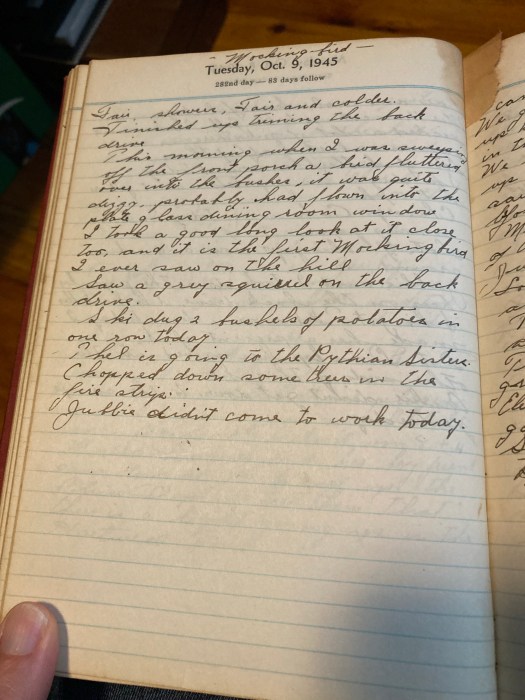 - Mocking-bird -
Tuesday, Oct. 9, 1945
282nd day — 83 days follow
Fair, shower, Fair and colder.
Finished up triming the back
drive
This morning when I was sweeping
off the front porch a bird fluttered
over into the bushes, it was quite
dizzy, probably had flown into the
plate glass dining room window
I took a good long look at it close
too, and it is the first Mocking bird
I ever saw on the hill
Saw a grey squirrel on the back
drive.
Ski dug 2 bushels of potatoes in
one row today
Thel is going to the Pythian Sisters.
Chopped down some trees in the
fire strip.
Jubbie didn't come to work today.
can
We g
up
in t
We
up